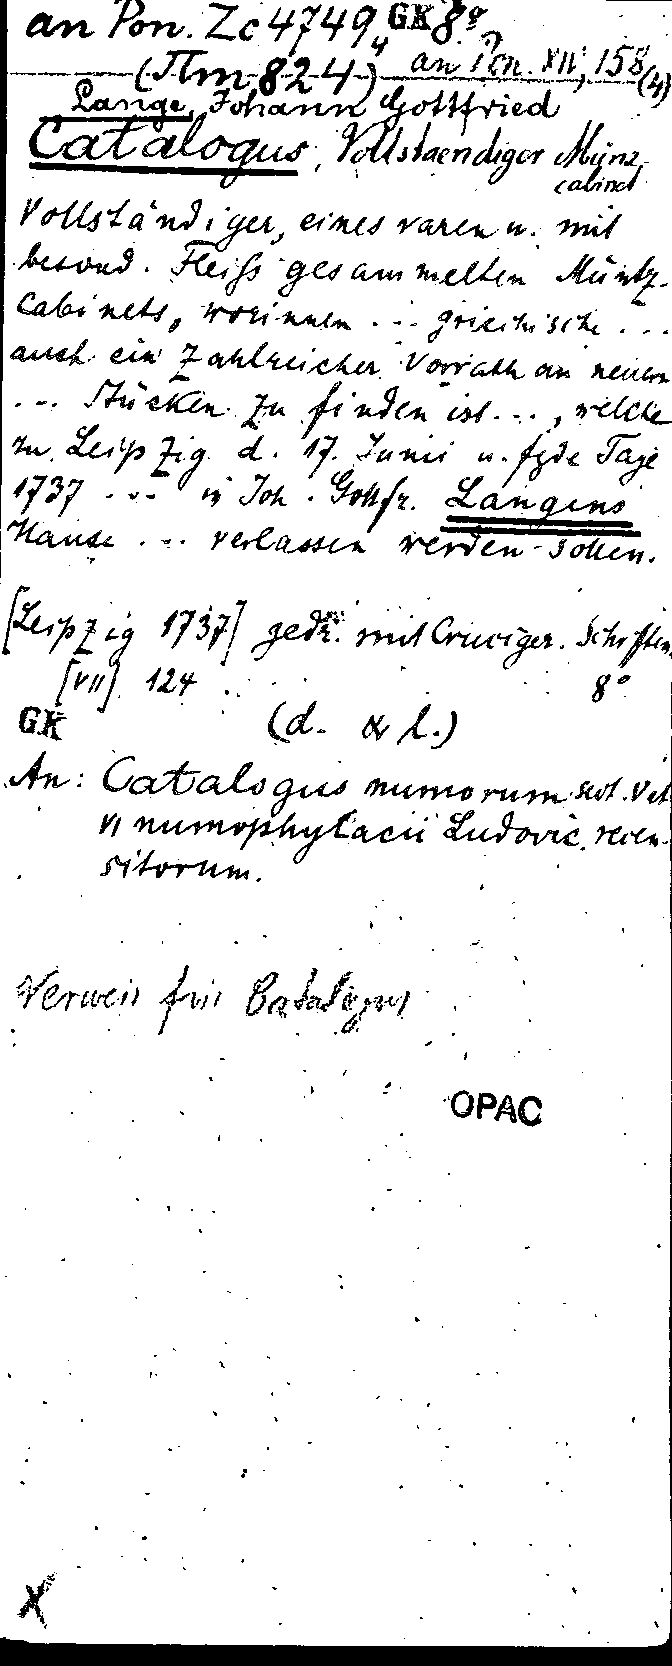 an Pon. Zc 4749, GK 8º,
4
(Πm 824) an Pon. XII, 158 (4)
Lange, Johann Gottfried
Catalogus, Vollstaendiger Münz-
cabinet
Vollständiger, eines raren u. mit
besond. Fleiss gesammelten Müntz-
cabinets, worinnen ... griechische ...
auch ein zahlreicher Vorrath an neuern
... Stücken zu finden ist ..., welche
zu Leipzig d. 17. Junii u. fgde Tage
1737 ... in Joh. Gottfr. Langens
Hause ... verlassen werden sollen.
[Leipzig 1737] gedr. mit Cruciger. Schriften.
[VII] 124 8º
GK (d. & l.)
An: Catalogus numorum
numophylacii Ludovic. recen-
sitorum.
Verweis für Catalogus
OPAC
X